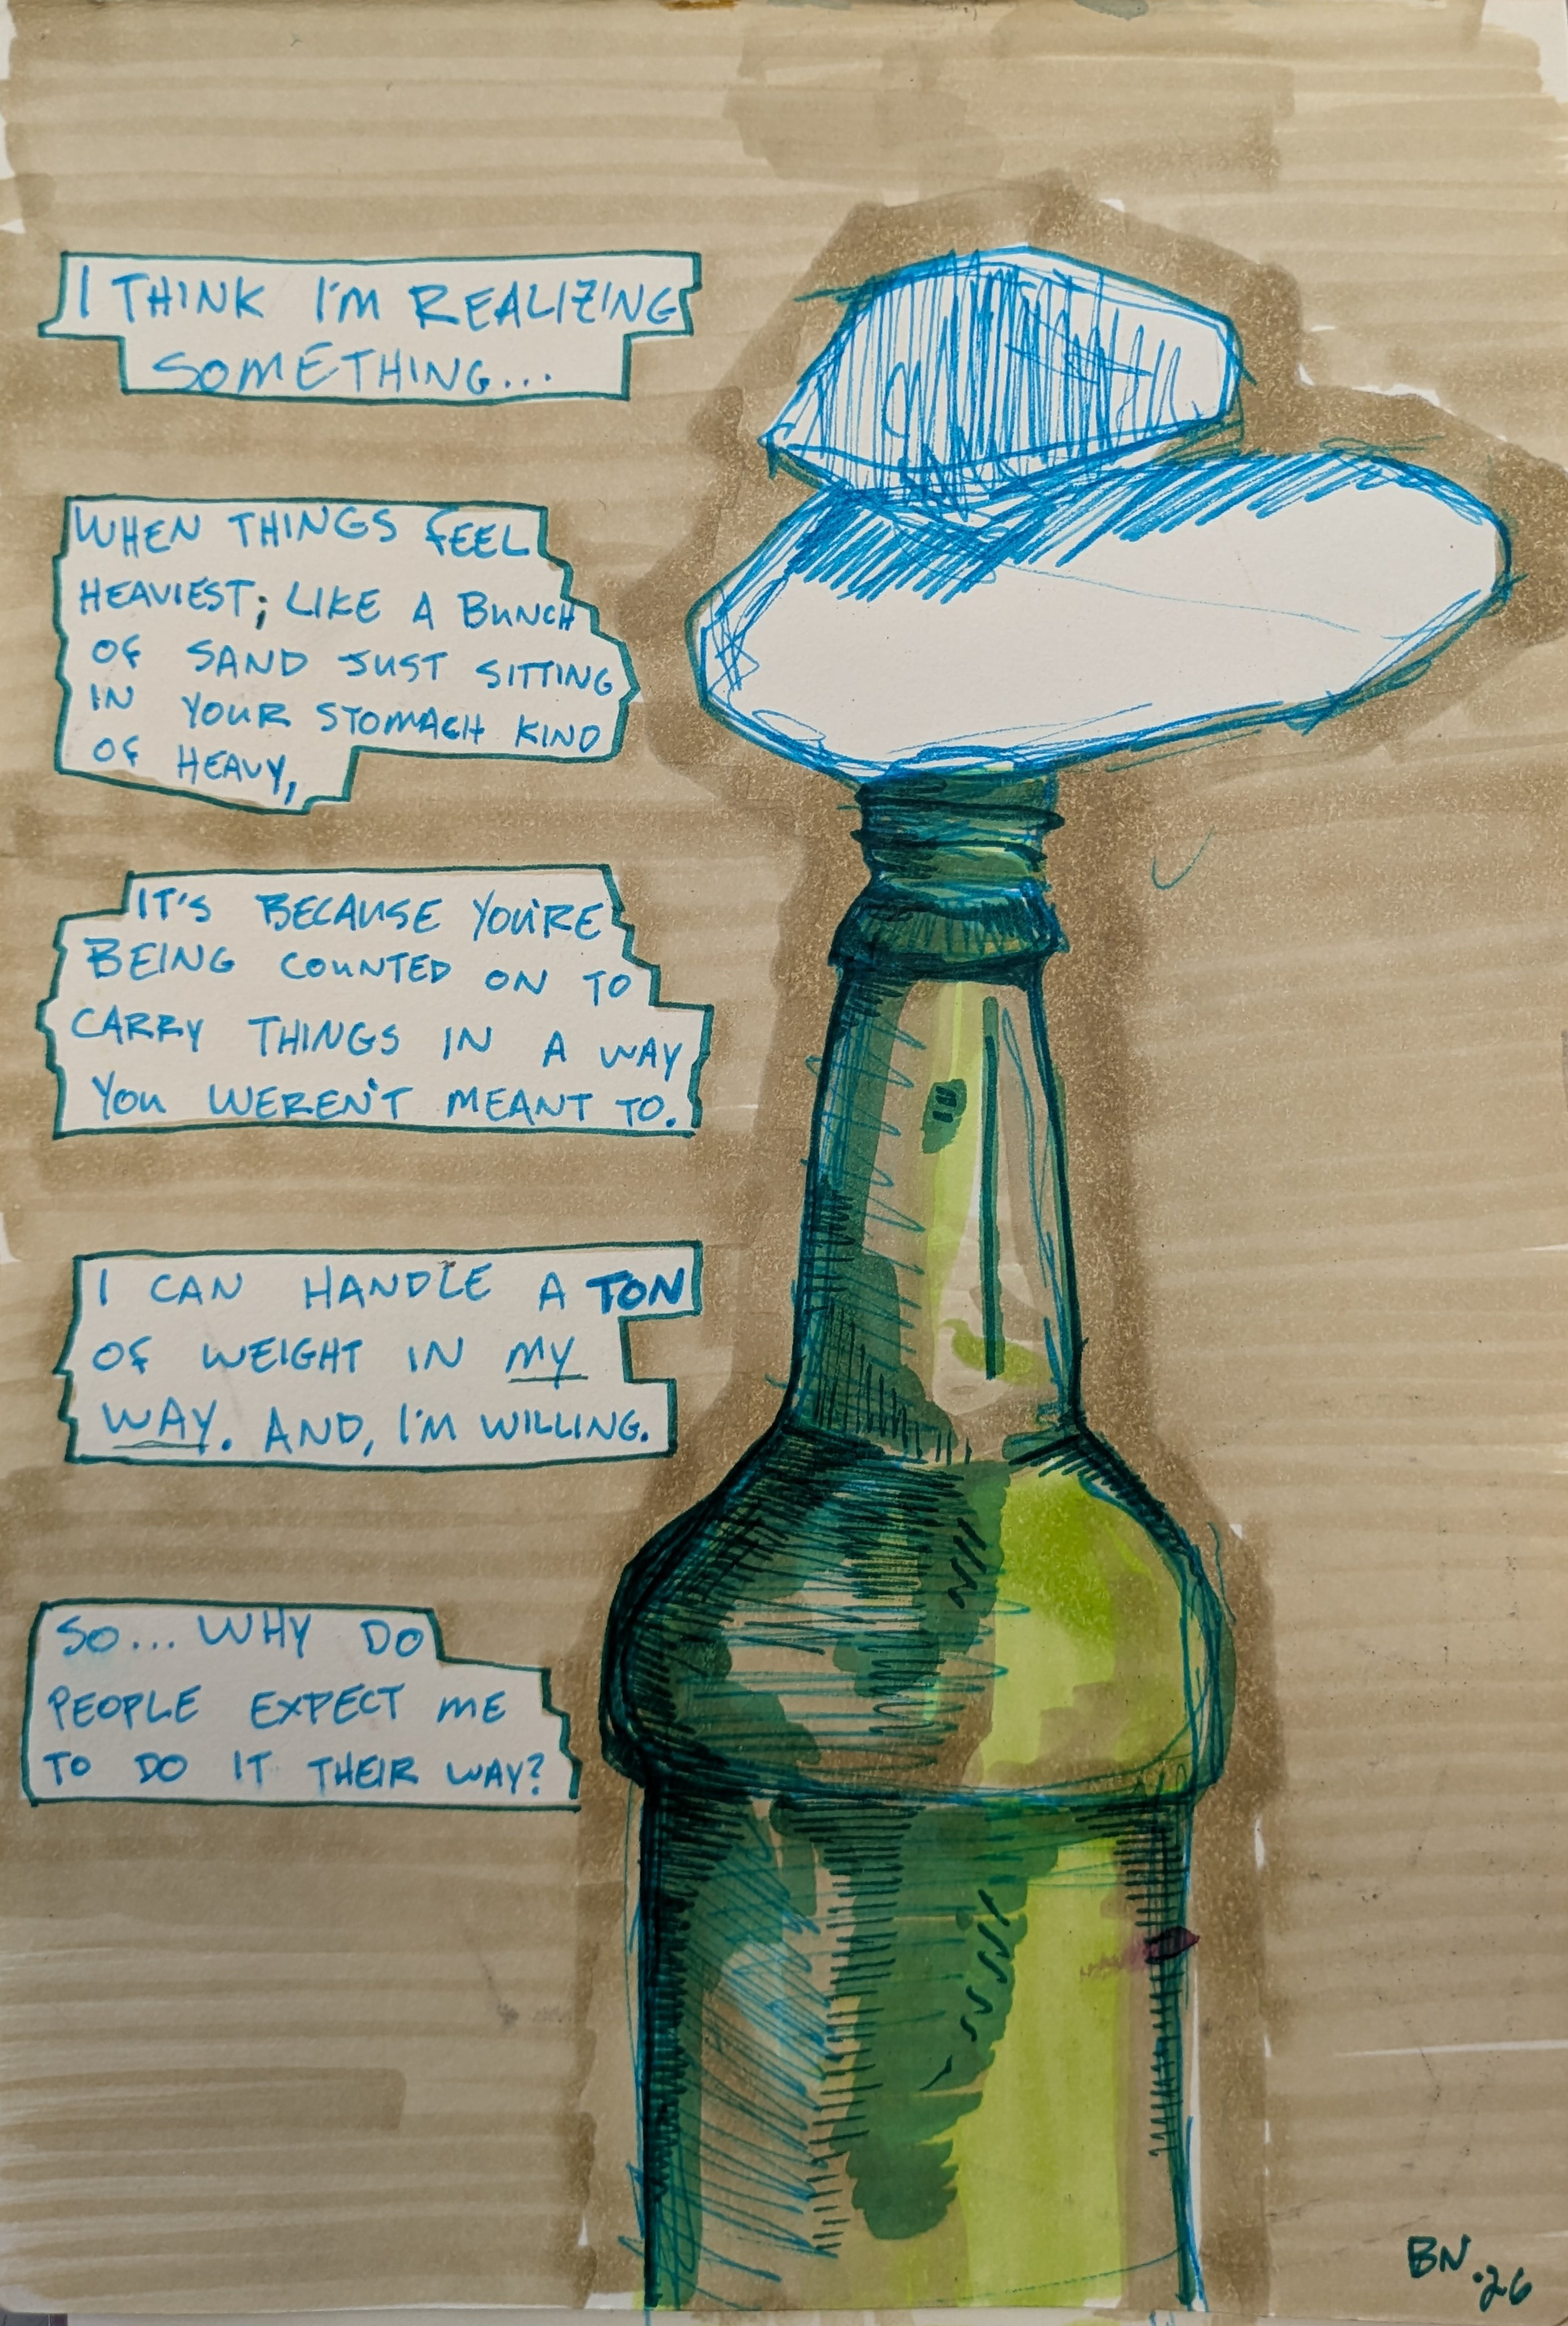 I THINK I'M REALIZING
SOMETHING...
WHEN THINGS FEEL
HEAVIEST; LIKE A BUNCH
OF SAND JUST SITTING
IN YOUR STOMACH KIND
OF HEAVY,
IT'S BECAUSE YOU'RE
BEING COUNTED ON TO
CARRY THINGS IN A WAY
YOU WEREN'T MEANT TO.
I CAN HANDLE A TON
OF WEIGHT IN MY
WAY. AND, I'M WILLING.
SO... WHY DO
PEOPLE EXPECT ME
TO DO IT THEIR WAY?
BN
.26